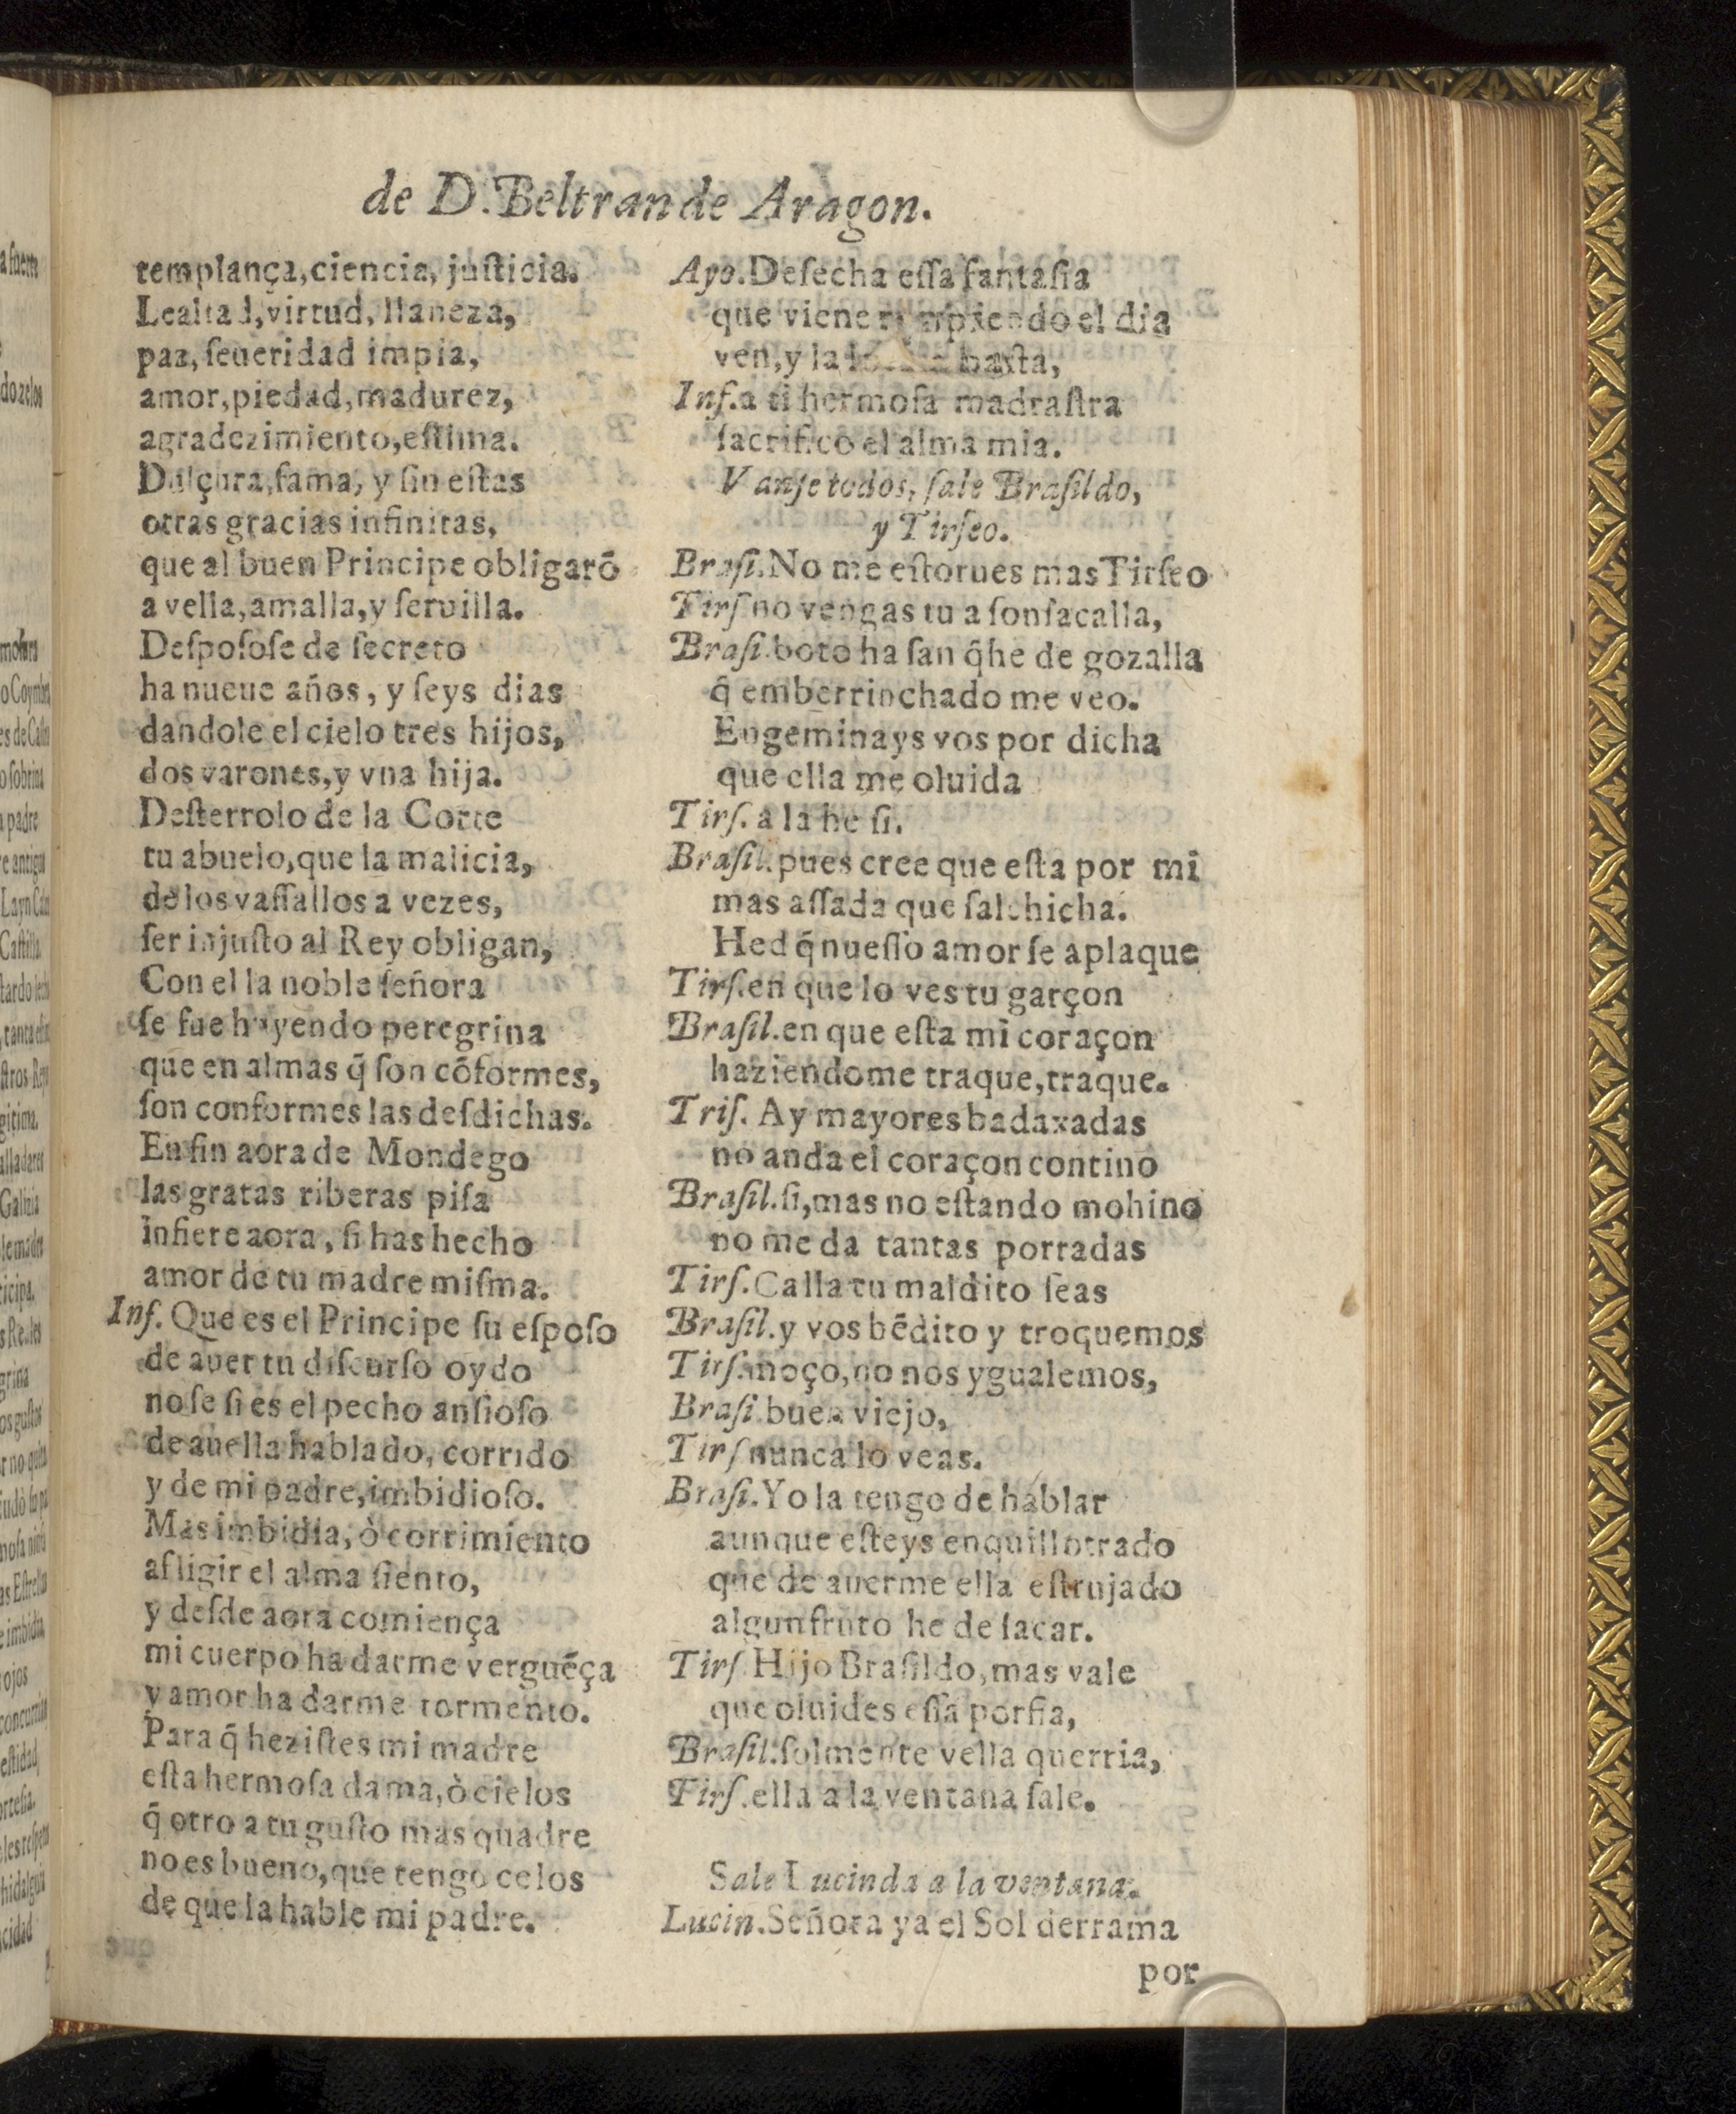 de D. Beltran de Aragon.
templança, ciencia, juſticia.
Lealtad, virtud, llaneza,
paz, ſeueridad impia,
amor, piedad, madurez,
agradezimiento, eſtima.
Dulçura, fama, y ſin eſtas
otras gracias infinitas,
que al buen Principe obligarõ
a vella, amalla, y ſeruilla.
Deſpoſoſe de ſecreto
ha nueue años, y ſeys dias
dandole el cielo tres hijos,
dos varones, y vna hija.
Deſterrolo de la Corte
tu abuelo, que la malicia,
de los vaſſallos a vezes,
ſer injuſto al Rey obligan,
Con el la noble ſeñora
ſe fue huyendo peregrina
que en almas q̃ ſon cõformes,
ſon conformes las deſdichas.
En fin aora de Mondego
las gratas riberas piſa
infiere aora, ſi has hecho
amor de tu madre miſma.
Inf. Que es el Principe ſu eſpoſo
de auer tu diſcurſo oydo
no ſe ſi es el pecho anſioſo
de auella hablado, corrido
y de mi padre, imbidioſo.
Mas imbidia, ò corrimiento
afligir el alma ſiento,
y deſde aora comiença
mi cuerpo ha darme verguẽça
y amor ha darme tormento.
Para q̃ heziſtes mi madre
eſta hermoſa dama, ò cielos
q̃ otro a tu guſto mas quadre
no es bueno, que tengo celos
de que la hable mi padre.
Ayo. Deſecha eſſa fantaſia
que viene rompiendo el dia
ven, y la baſta,
Inf. a ti hermoſa madraſtra
ſacrifico el alma mia.
Vanſe todos, ſale Braſildo,
y Tirſeo.
Braſi. No me eſtorues mas Tirſeo
Tirſ no vengas tu a ſonſacalla,
Braſi. boto ha ſan q̃ he de gozalla
q̃ emberrinchado me veo.
Engeminays vos por dicha
que ella me oluida
Tirſ. a la he ſi.
Braſil. pues cree que eſta por mi
mas aſſada que ſalchicha.
Hed q̃ nueſſo amor ſe aplaque
Tirſ. en que lo ves tu garçon
Braſil. en que eſta mi coraçon
haziendome traque, traque.
Triſ. Ay mayores badaxadas
no anda el coraçon contino
Braſil. ſi, mas no eſtando mohino
no me da tantas porradas
Tirſ. Calla tu maldito ſeas
Braſil. y vos bẽdito y troquemos
Tirſ. moço, no nos ygualemos,
Braſi. buen viejo,
Tirſ nunca lo veas.
Braſi. Yo la tengo de hablar
aunque eſteys enquillotrado
que de auerme ella eſtrujado
algun fruto he de ſacar.
Tirſ Hijo Braſildo, mas vale
que oluides eſſa porfia,
Braſil. ſolmente vella querria,
Tirſ. ella a la ventana ſale.
Sale Lucinda a la ventana.
Lucin. Señora ya el Sol derrama
por